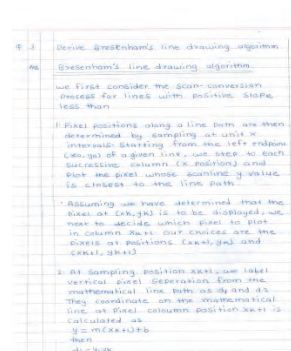 Q.3 Derive Bresenham's line drawing algorithm
Ans Bresenham's line drawing algorithm.
we first consider the scan-conversion
process for lines with positive slope
less than
1. Pixel positions along a line path are then
determined by sampling at unit x
intervals. Starting from the left endpoint
(x0, y0) of a given line, we step to each
successive column (x position) and
plot the pixel whose scanline y value
is closest to the line path
Assuming we have determined that the
pixel at (xk, yk) is to be displayed, we
next to decide which pixel to plot
in column xk+1. Our choices are the
pixels at positions (xk+1, yk) and
(xk+1, yk+1)
2. At sampling position xk+1, we label
vertical pixel seperation from the
mathematical line path as d1 and d2
They coordinate on the mathematical
line at pixel coloumn position xk+1 is
calculated as
y = m(xk+1)+b
then